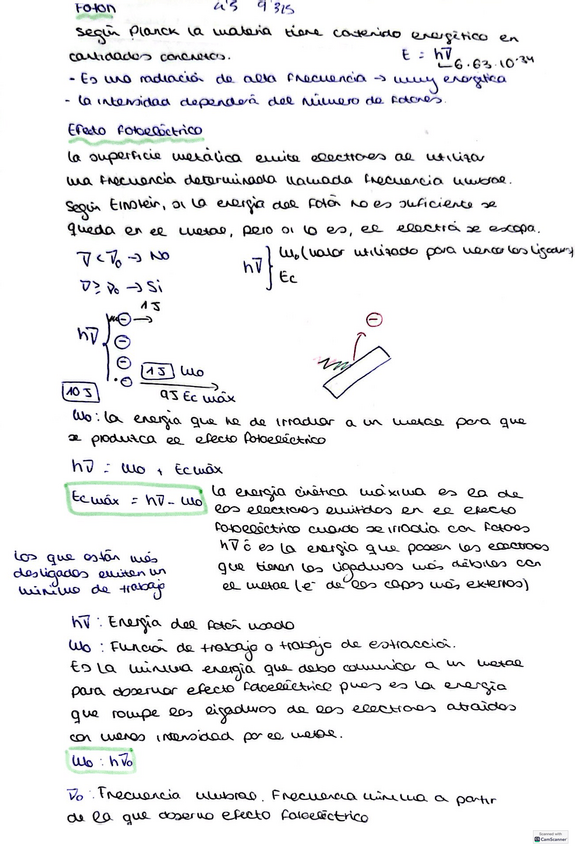 Fotón
Según Planck la materia tiene contenido energético en
cantidades concretas. E = hν̄
6.63.10⁻³⁴
- Es una radiación de alta frecuencia → muy energética
- la intensidad dependerá del número de fotones.
Efecto fotoeléctrico
la superficie metálica emite electrones al utilizar
una frecuencia determinada llamada frecuencia umbral.
Según Einstein, si la energía del fotón no es suficiente se
queda en el metal, pero si lo es, el electrón se escapa.
ν̄ < ν̄₀ → No
ν̄ ≥ ν̄₀ → Si
hν̄ } ω₀ (valor utilizado para vencer las ligaduras)
Ec
1J
hν̄
1J ω₀
10J
9J Ec máx
ω₀: la energía que he de irradiar a un metal para que
se produzca el efecto fotoeléctrico
hν̄ = ω₀ + Ecmáx
Ecmáx = hν̄ - ω₀
la energía cinética máxima es la de
los electrones emitidos en el efecto
fotoeléctrico cuando se irradia con fotones
hν̄ ó es la energía que poseen los electrones
que tienen las ligaduras más débiles con
el metal (e⁻ de las capas más externas)
los que están más
desligados emiten un
mínimo de trabajo
hν̄: Energía del fotón usado
ω₀: Función de trabajo o trabajo de extracción.
Es la mínima energía que debo comunicar a un metal
para observar efecto fotoeléctrico pues es la energía
que rompe las ligaduras de los electrones atraídos
con menos intensidad por el metal.
ω₀ : hν̄₀
ν̄₀: Frecuencia umbral. Frecuencia mínima a partir
de la que observo efecto fotoeléctrico
Scanned with
CamScanner